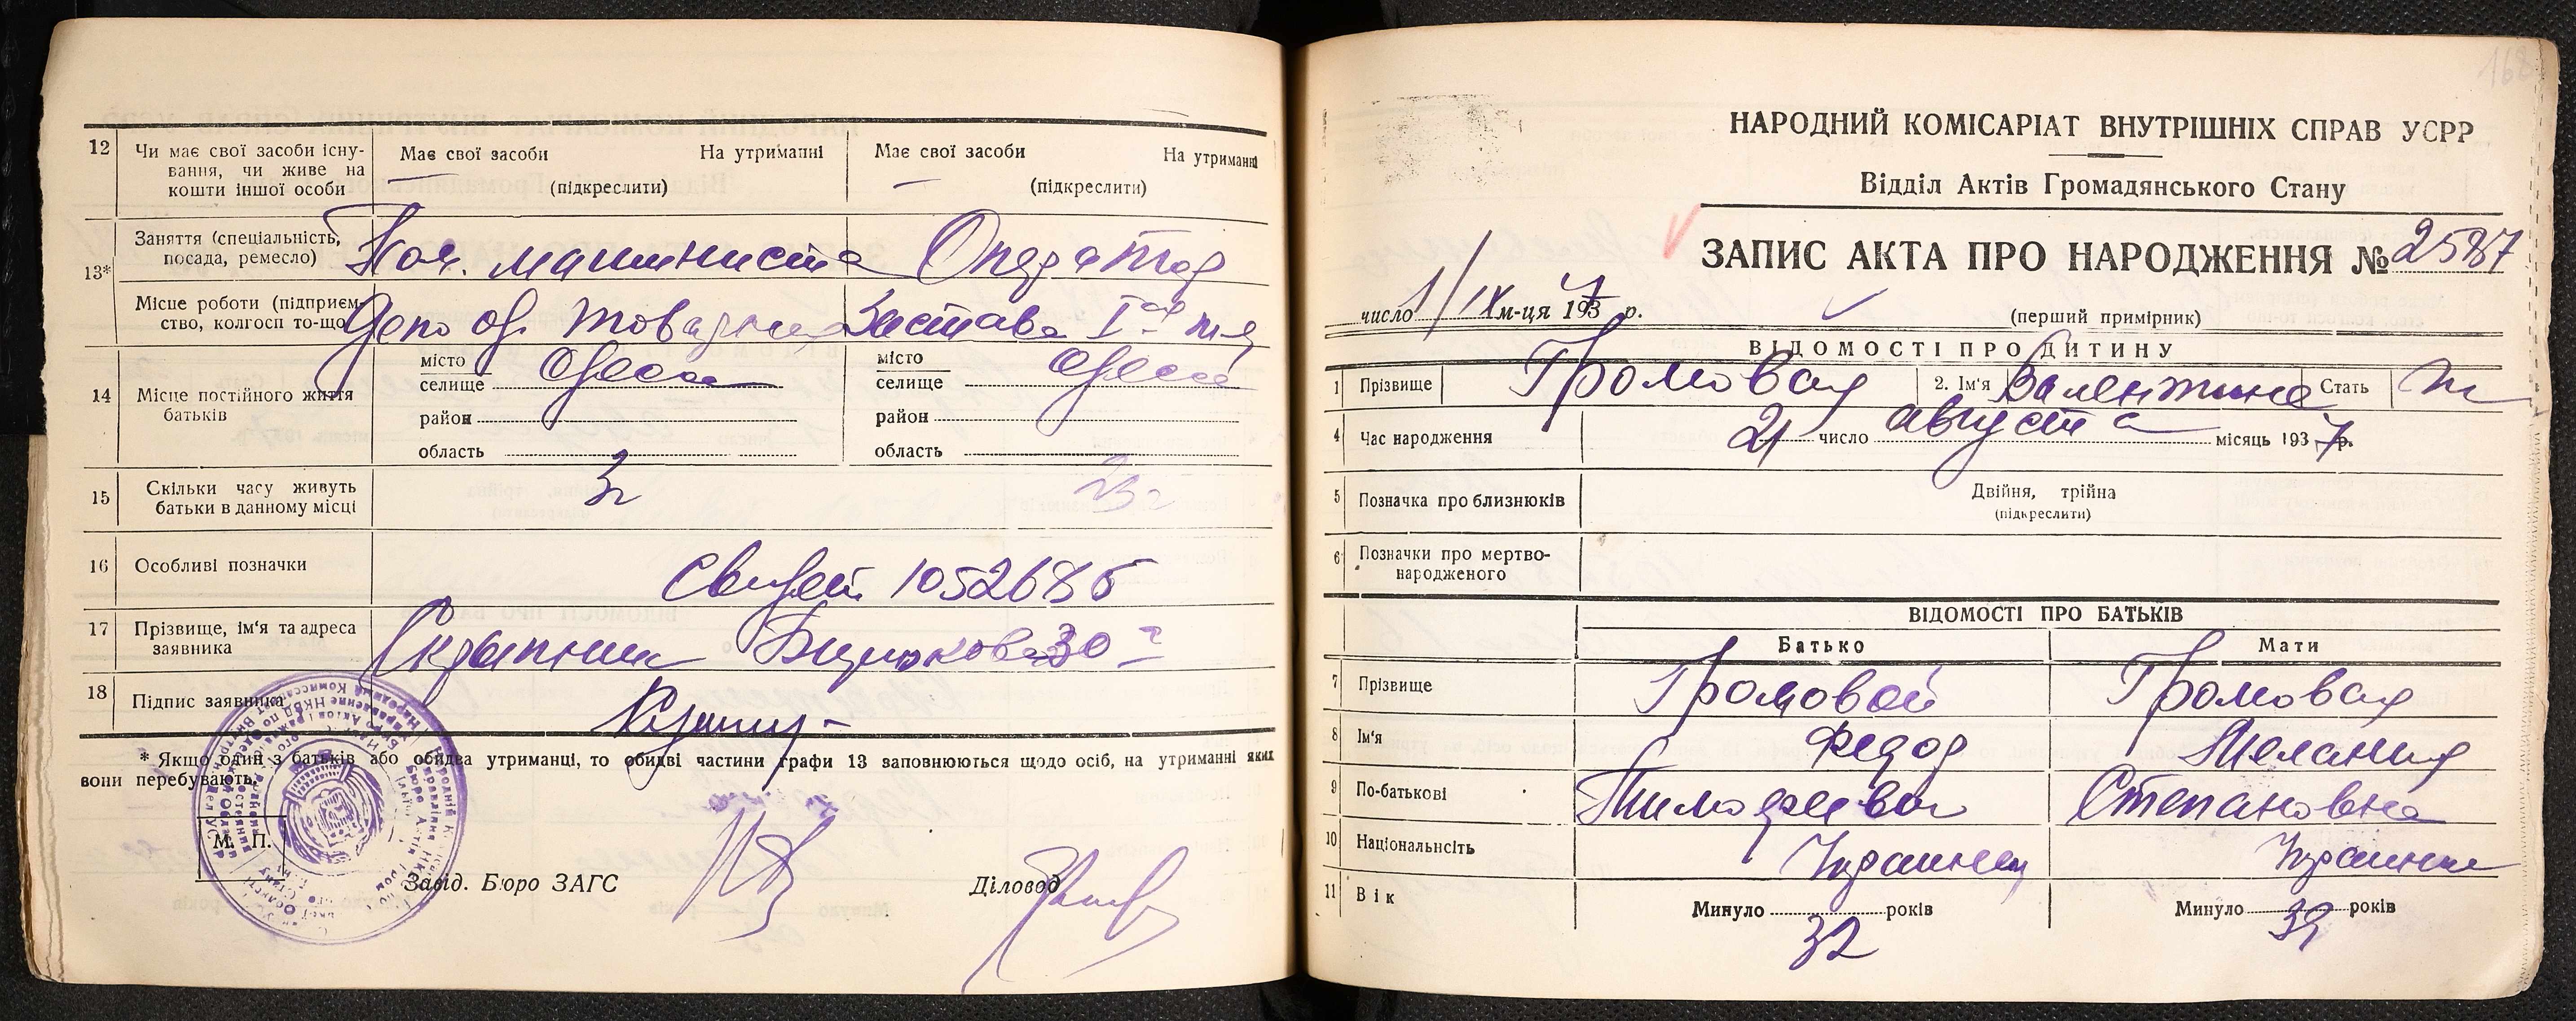 12 Чи має свої засоби існу-
вання, чи живе на
кошти іншої особи
Має свої засоби На утриманні
(підкреслити)
Має свої засоби На утриманні
(підкреслити)
13* Заняття (спеціальність,
посада, ремесло)
Пом. машиниста Оператор
Місце роботи (підприєм-
ство, колгосп то-що
Депо од. товарная Застава Iая
14 Місце постійного життя
батьків
місто
селище Одесса
район
область
місто
селище Одесса
район
область
15 Скільки часу живуть
батьки в данному місці
3г 3г
16 Особливі позначки
Свидет. 1052685
17 Прізвище, ім'я та адреса
заявника
Скрыпник 30
18 Підпис заявника
* Якщо один з батьків або обидва утриманці, то обидві частини графи 13 заповнюються щодо осіб, на утриманні яких
вони перебувають.
М. П.
Завід. Бюро ЗАГС Діловод
168
НАРОДНИЙ КОМІСАРІАТ ВНУТРІШНІХ СПРАВ УСРР
Відділ Актів Громадянського Стану
ЗАПИС АКТА ПРО НАРОДЖЕННЯ № 2587
число 1/IX м-ця 1937 р.
(перший примірник)
ВІДОМОСТІ ПРО ДИТИНУ
1 Прізвище Громовая 2. Ім'я Валентина Стать ж
4 Час народження 21 число августа місяць 1937 р.
5 Позначка про близнюків Двійня, трійна
(підкреслити)
6 Позначки про мертво-
народженого
ВІДОМОСТІ ПРО БАТЬКІВ
Батько Мати
7 Прізвище Громовой Громовая
8 Ім'я Федор Мелания
9 По-батькові Тимофеевич Степановна
10 Національність Украинец Украинка
11 Вік Минуло 32 років Минуло 32 років